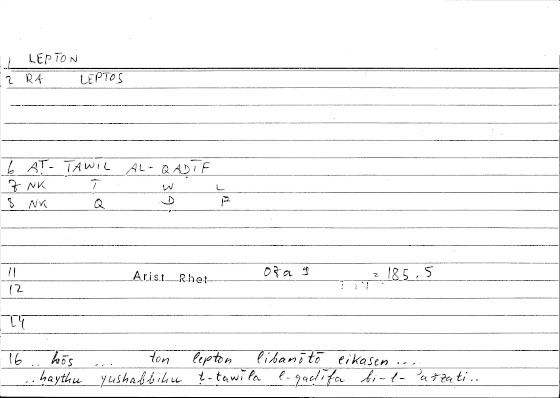 1 LEPTON
2 RA LEPTOS
6 AṬ- ṬAWĪL AL- QAḌĪF
7 NK Ṭ W L
8 NK Q Ḍ F
11 Arist Rhet 07a 9 = 185.5
12
14
16 .. hōs ... ton lepton libanōtō eikasen ...
..haythu yushabbihu ṭ-ṭawīla l-qaḍīfa bi-l-'arzati..